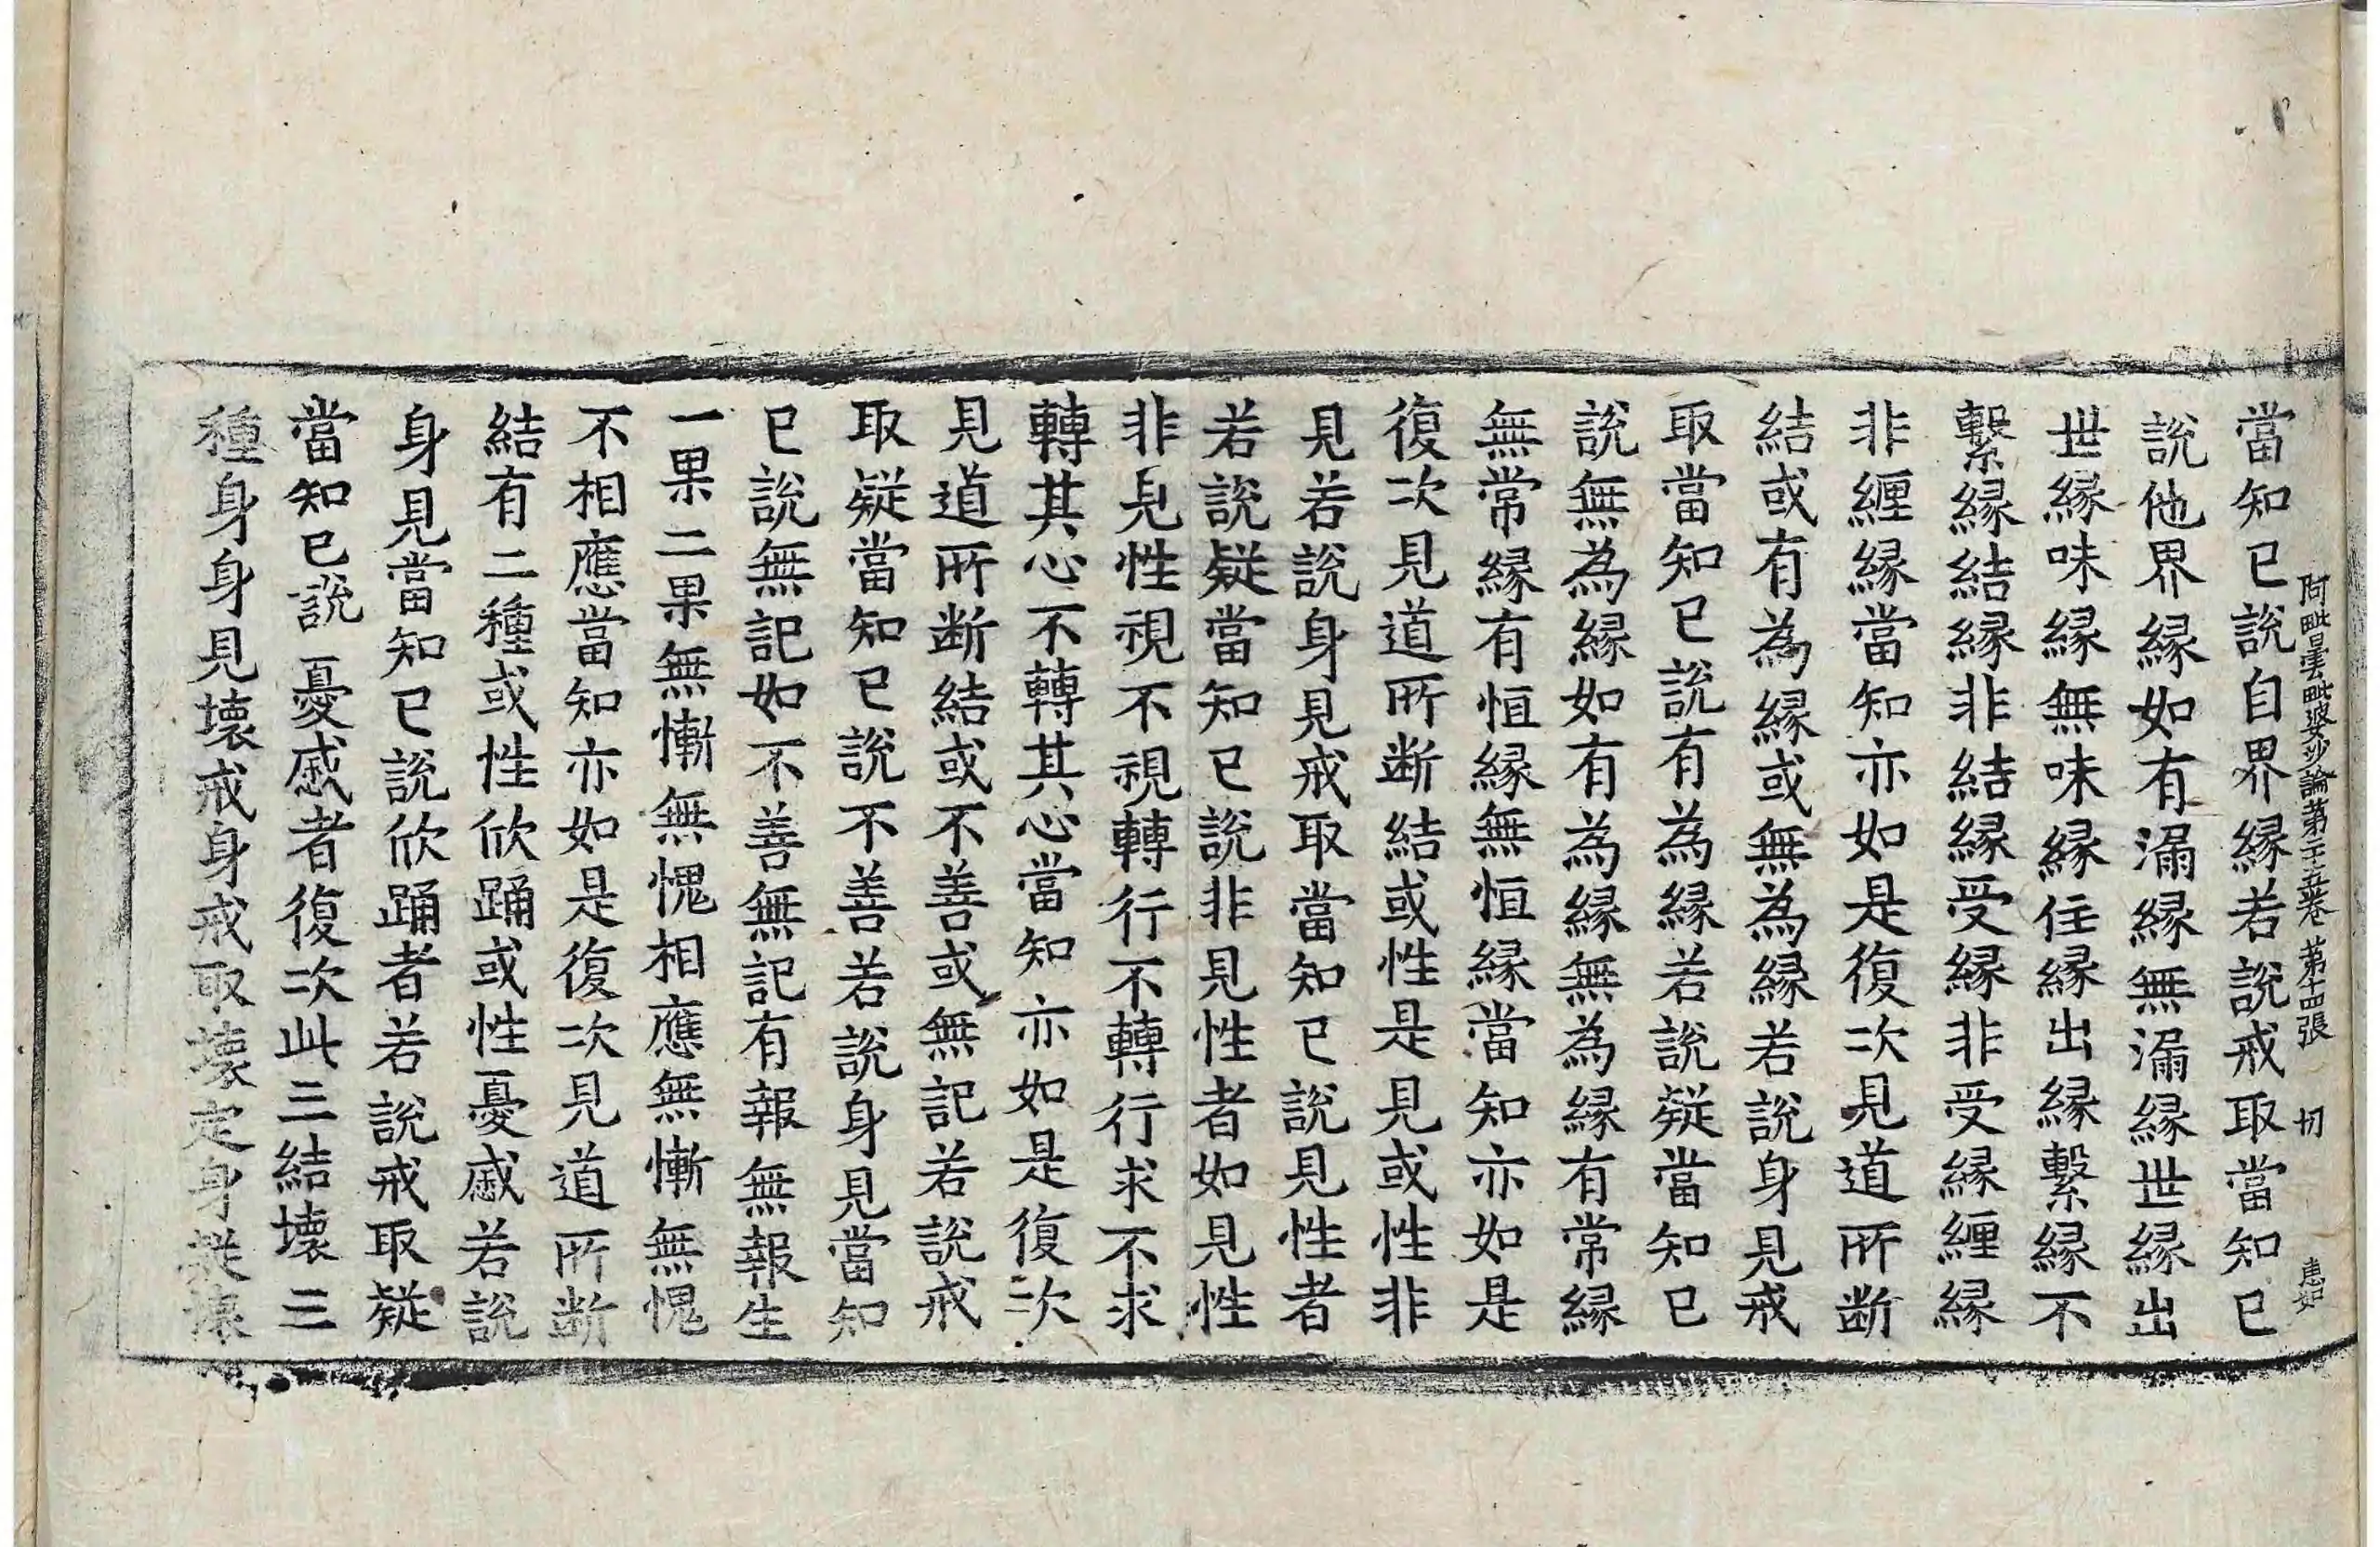 阿毗曇毗婆沙論第二十五卷 第十四張 切
當知已說自界縁若說戒取當知已
說他界縁如有漏縁無漏縁世縁出
世縁味縁無味縁住縁出縁繫縁不
繫縁結縁非結縁受縁非受縁纒縁
非纒縁當知亦如是復次見道所断
結或有為縁或無為縁若說身見戒
取當知已說有為縁若說疑當知已
說無為縁如有為縁無為縁有常縁
無常縁有恒縁無恒縁當知亦如是
復次見道所断結或性是見或性非
見若說身見戒取當知已說見性者
若說疑當知已說非見性者如見性
非見性視不視轉行不轉行求不求
轉其心不轉其心當知亦如是復次
見道所断結或不善或無記若說戒
取疑當知已說不善若說身見當知
已說無記如不善無記有報無報生
一果二果無慚無愧相應無慚無愧
不相應當知亦如是復次見道所断
結有二種或性欣踊或性憂慼若說
身見當知已說欣踊者若說戒取疑
當知已說憂慼者復次此三結壞三
種身身見壞戒身戒取壞定身疑壞